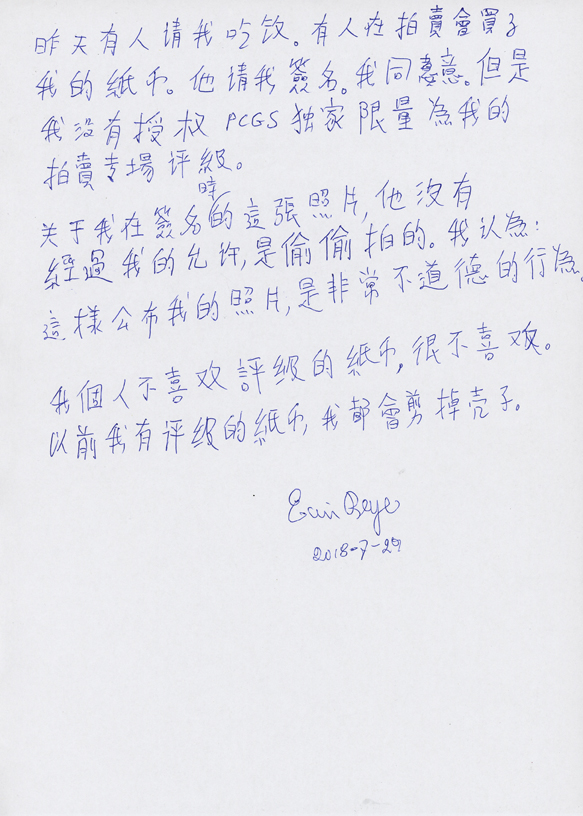 昨天有人请我吃饭。有人在拍賣會買了
我的紙币。他请我簽名。我同意。但是
我没有授权 PCGS 独家限量為我的
拍賣专場评級。
時
关于我在簽名的這張照片，他没有
經過我的允许，是偷偷拍的。我认為：
這樣公布我的照片，是非常不道德的行為。
我個人不喜欢評級的紙币，很不喜欢。
以前我有评級的紙币，我都會剪掉壳子。
2018-7-29